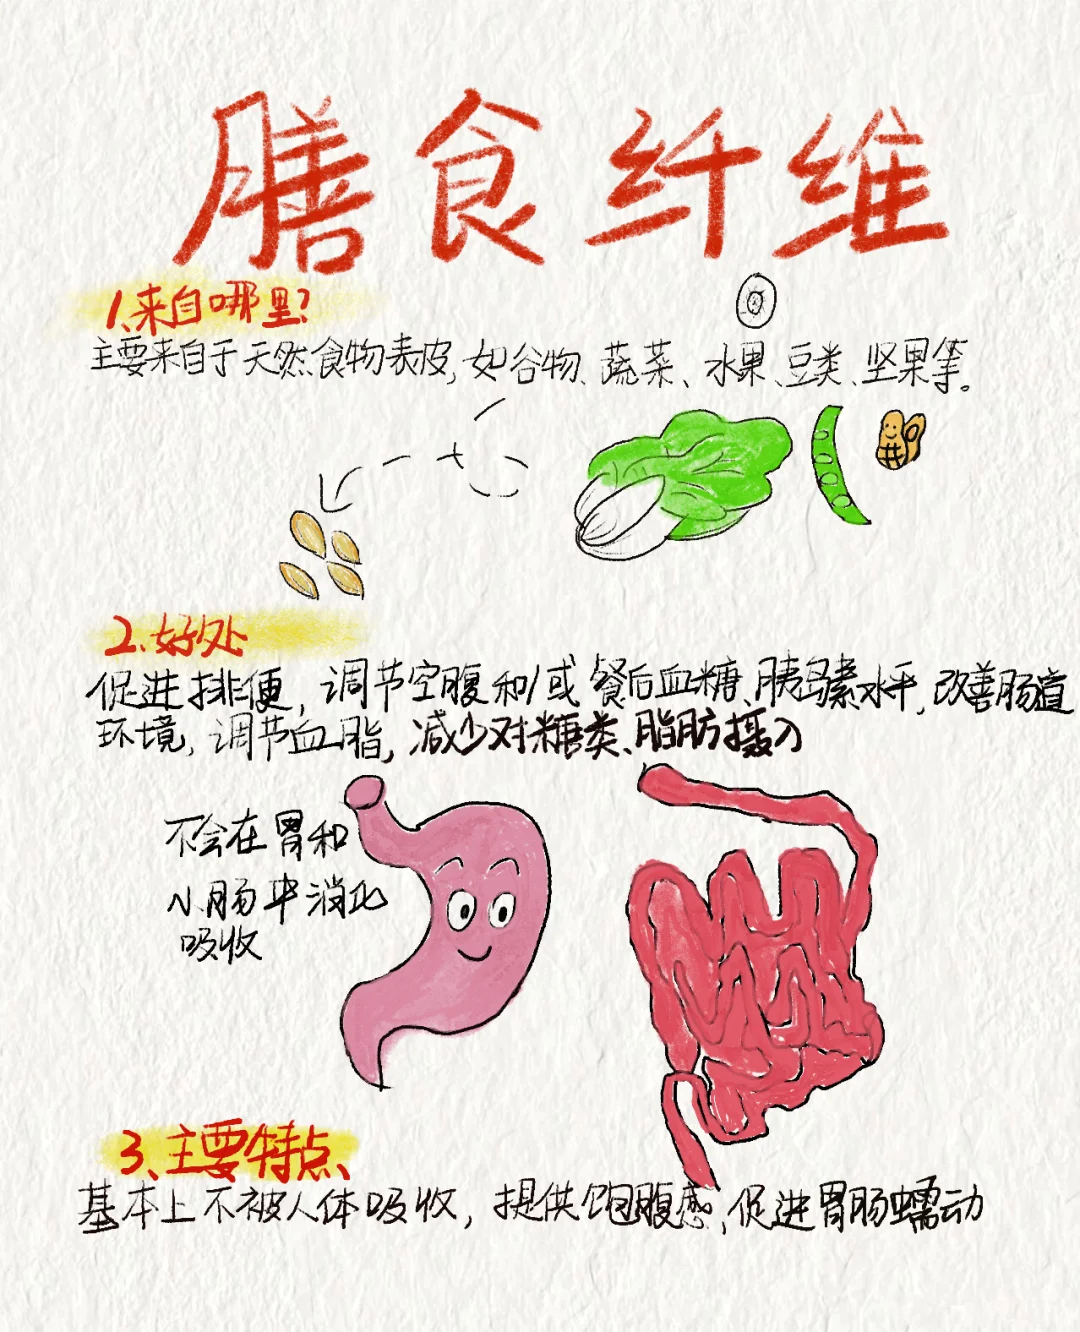 膳食纤维
1、来自哪里?
主要来自于天然食物表皮,如谷物、蔬菜、水果、豆类、坚果等。
2.好处
促进排便,调节空腹和/或餐后血糖、胰岛素水平,改善肠道
环境,调节血脂,减少对糖类、脂肪摄入
不会在胃和
小肠中消化
吸收
3、主要特点、
基本上不被人体吸收,提供饱腹感,促进胃肠蠕动